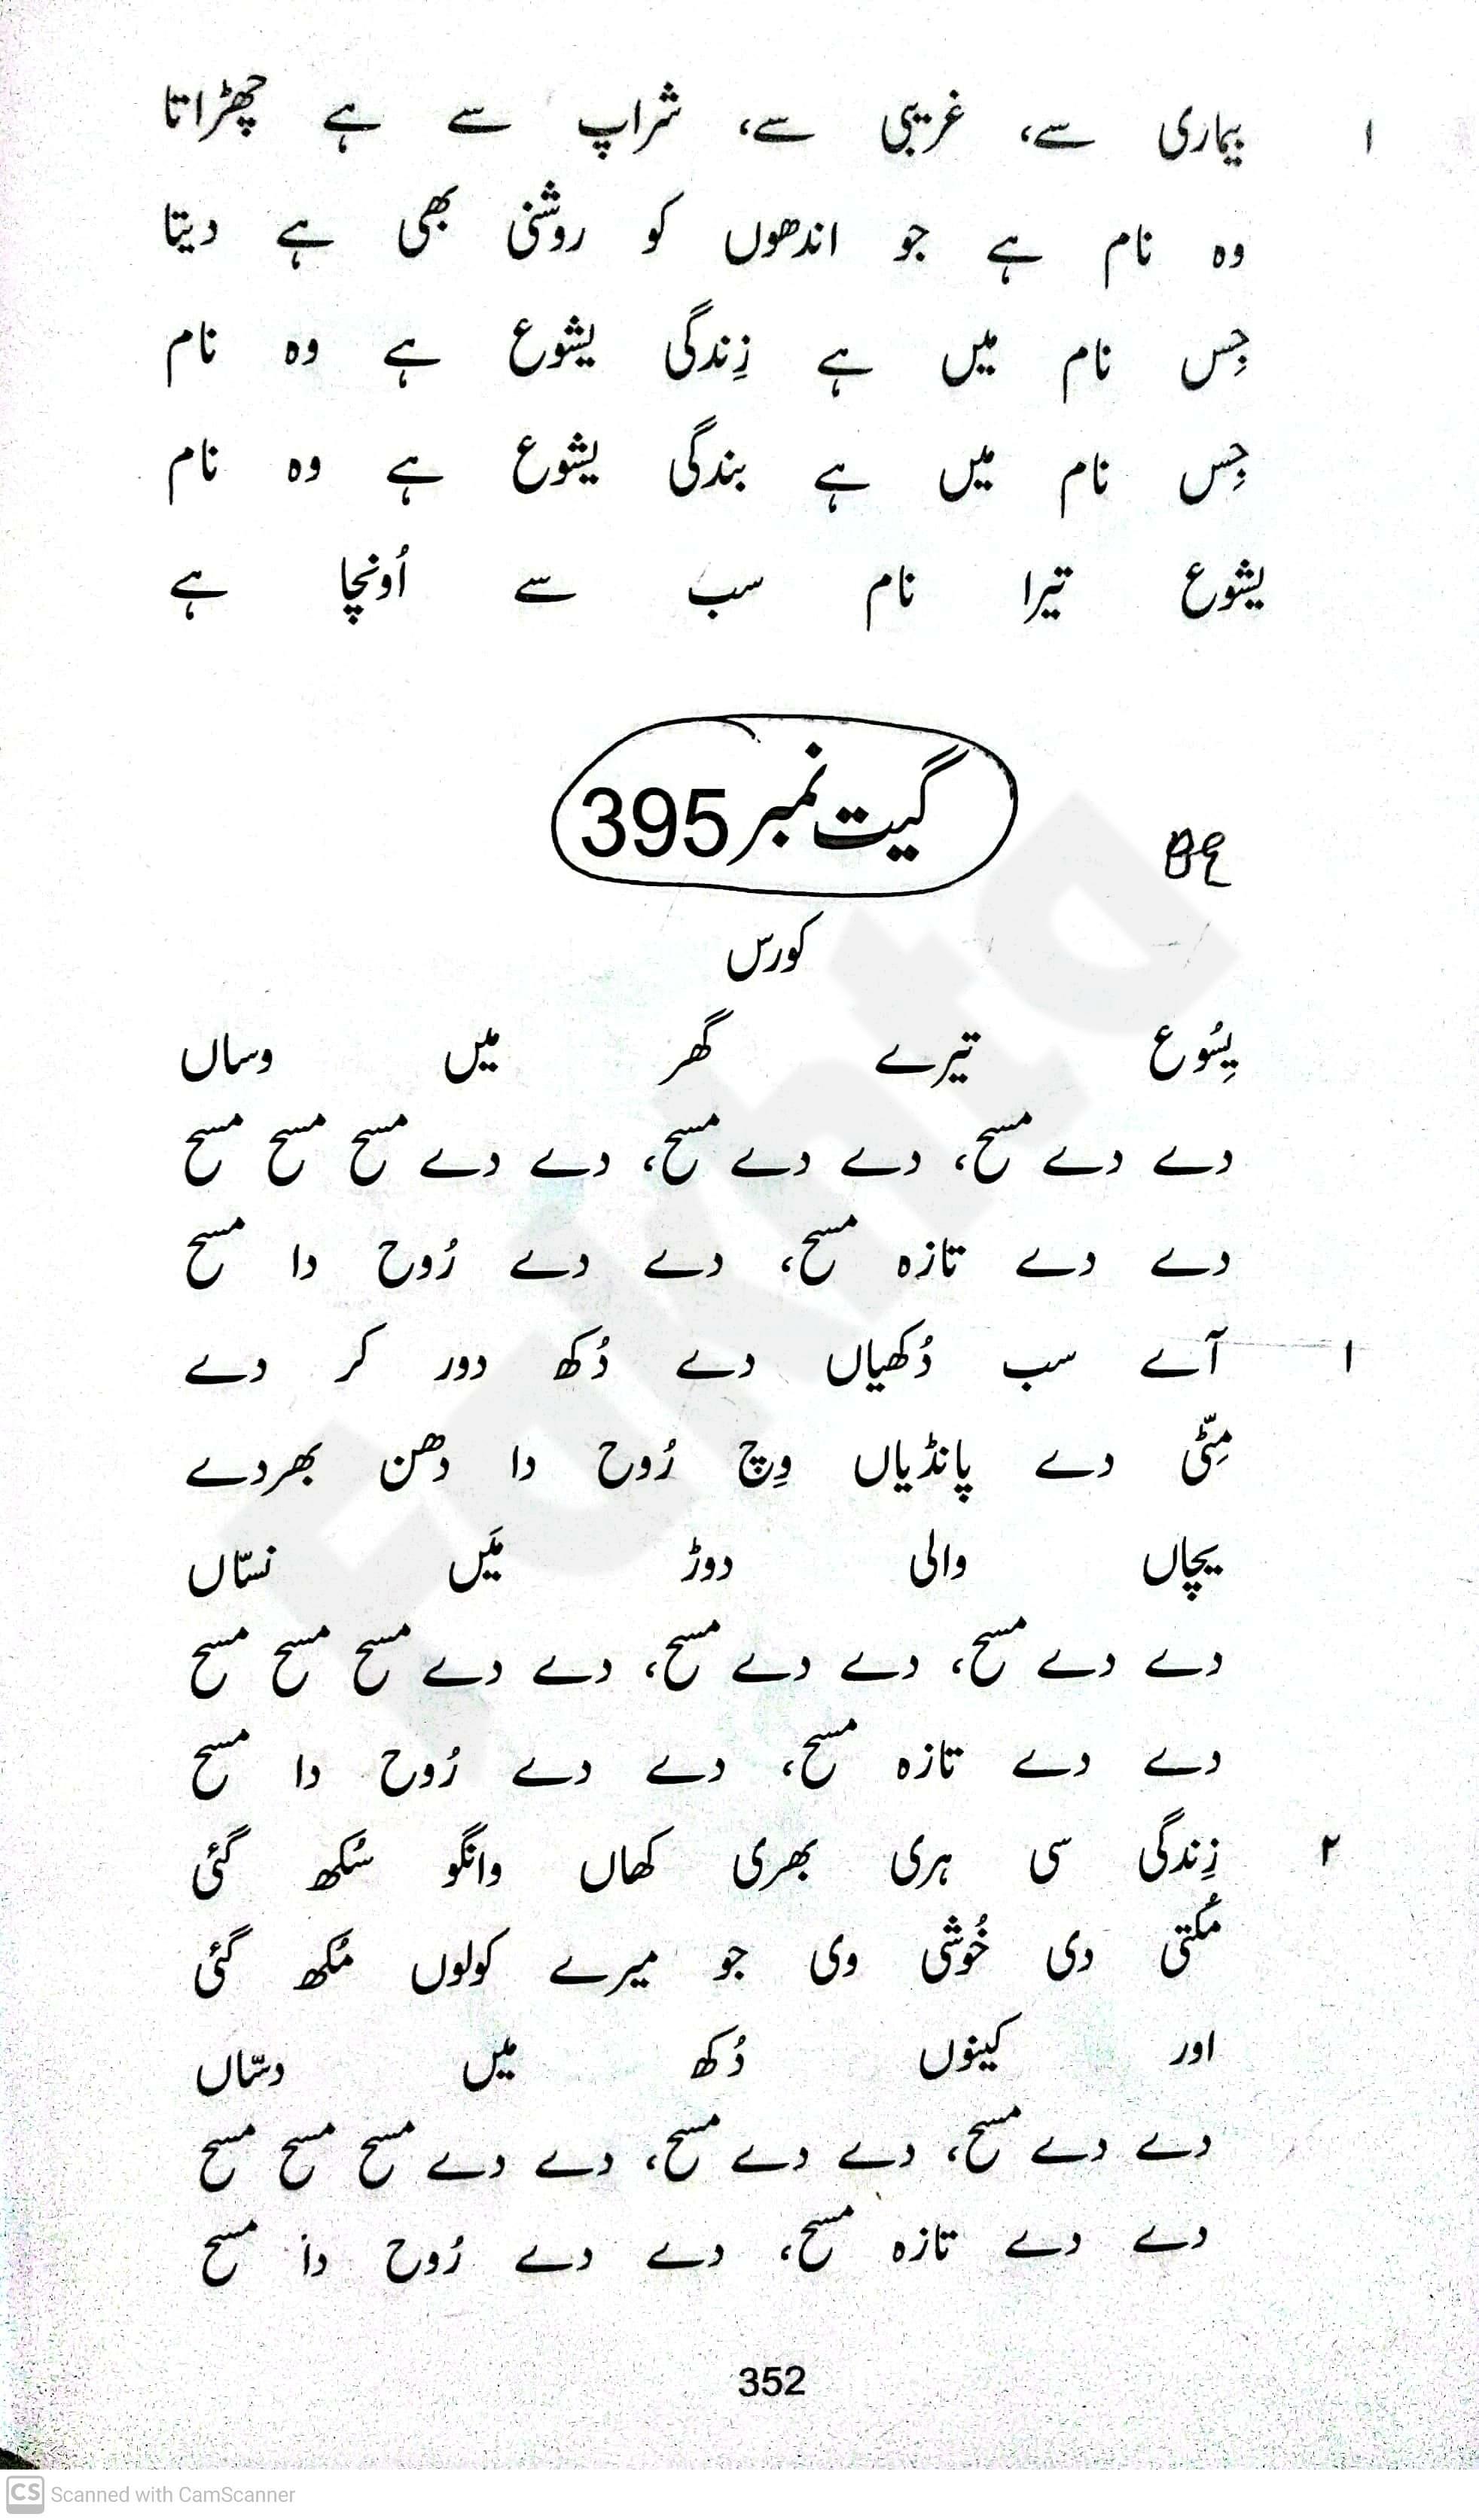 ۱ بیماری سے، غریبی سے، شراپ سے ہے چھڑاتا
وہ نام ہے جو اندھوں کو روشنی بھی ہے دیتا
جِس نام میں ہے زِندگی یشوع ہے وہ نام
جِس نام میں ہے بندگی یشوع ہے وہ نام
یشوع تیرا نام سب سے اُونچا ہے
گیت نمبر 395
کورس
یِسُوع تیرے گھر میں وساں
دے دے مسح، دے دے مسح، دے دے مسح مسح مسح
دے دے تازہ مسح، دے دے رُوح دا مسح
۱ آے سب دُکھیاں دے دُکھ دور کر دے
مِٹّی دے پانڈیاں وِچ رُوح دا دھن بھردے
یچاں والی دوڑ مَیں نسّاں
دے دے مسح، دے دے مسح، دے دے مسح مسح مسح
دے دے تازہ مسح، دے دے رُوح دا مسح
۲ زِندگی سی ہری بھری کھاں وانگو سُکھ گئی
مُکتی دی خُوشی وی جو میرے کولوں مُکھ گئی
اور کینوں دُکھ میں دسّاں
دے دے مسح، دے دے مسح، دے دے مسح مسح مسح
دے دے تازہ مسح، دے دے رُوح دا مسح
352
CS Scanned with CamScanner